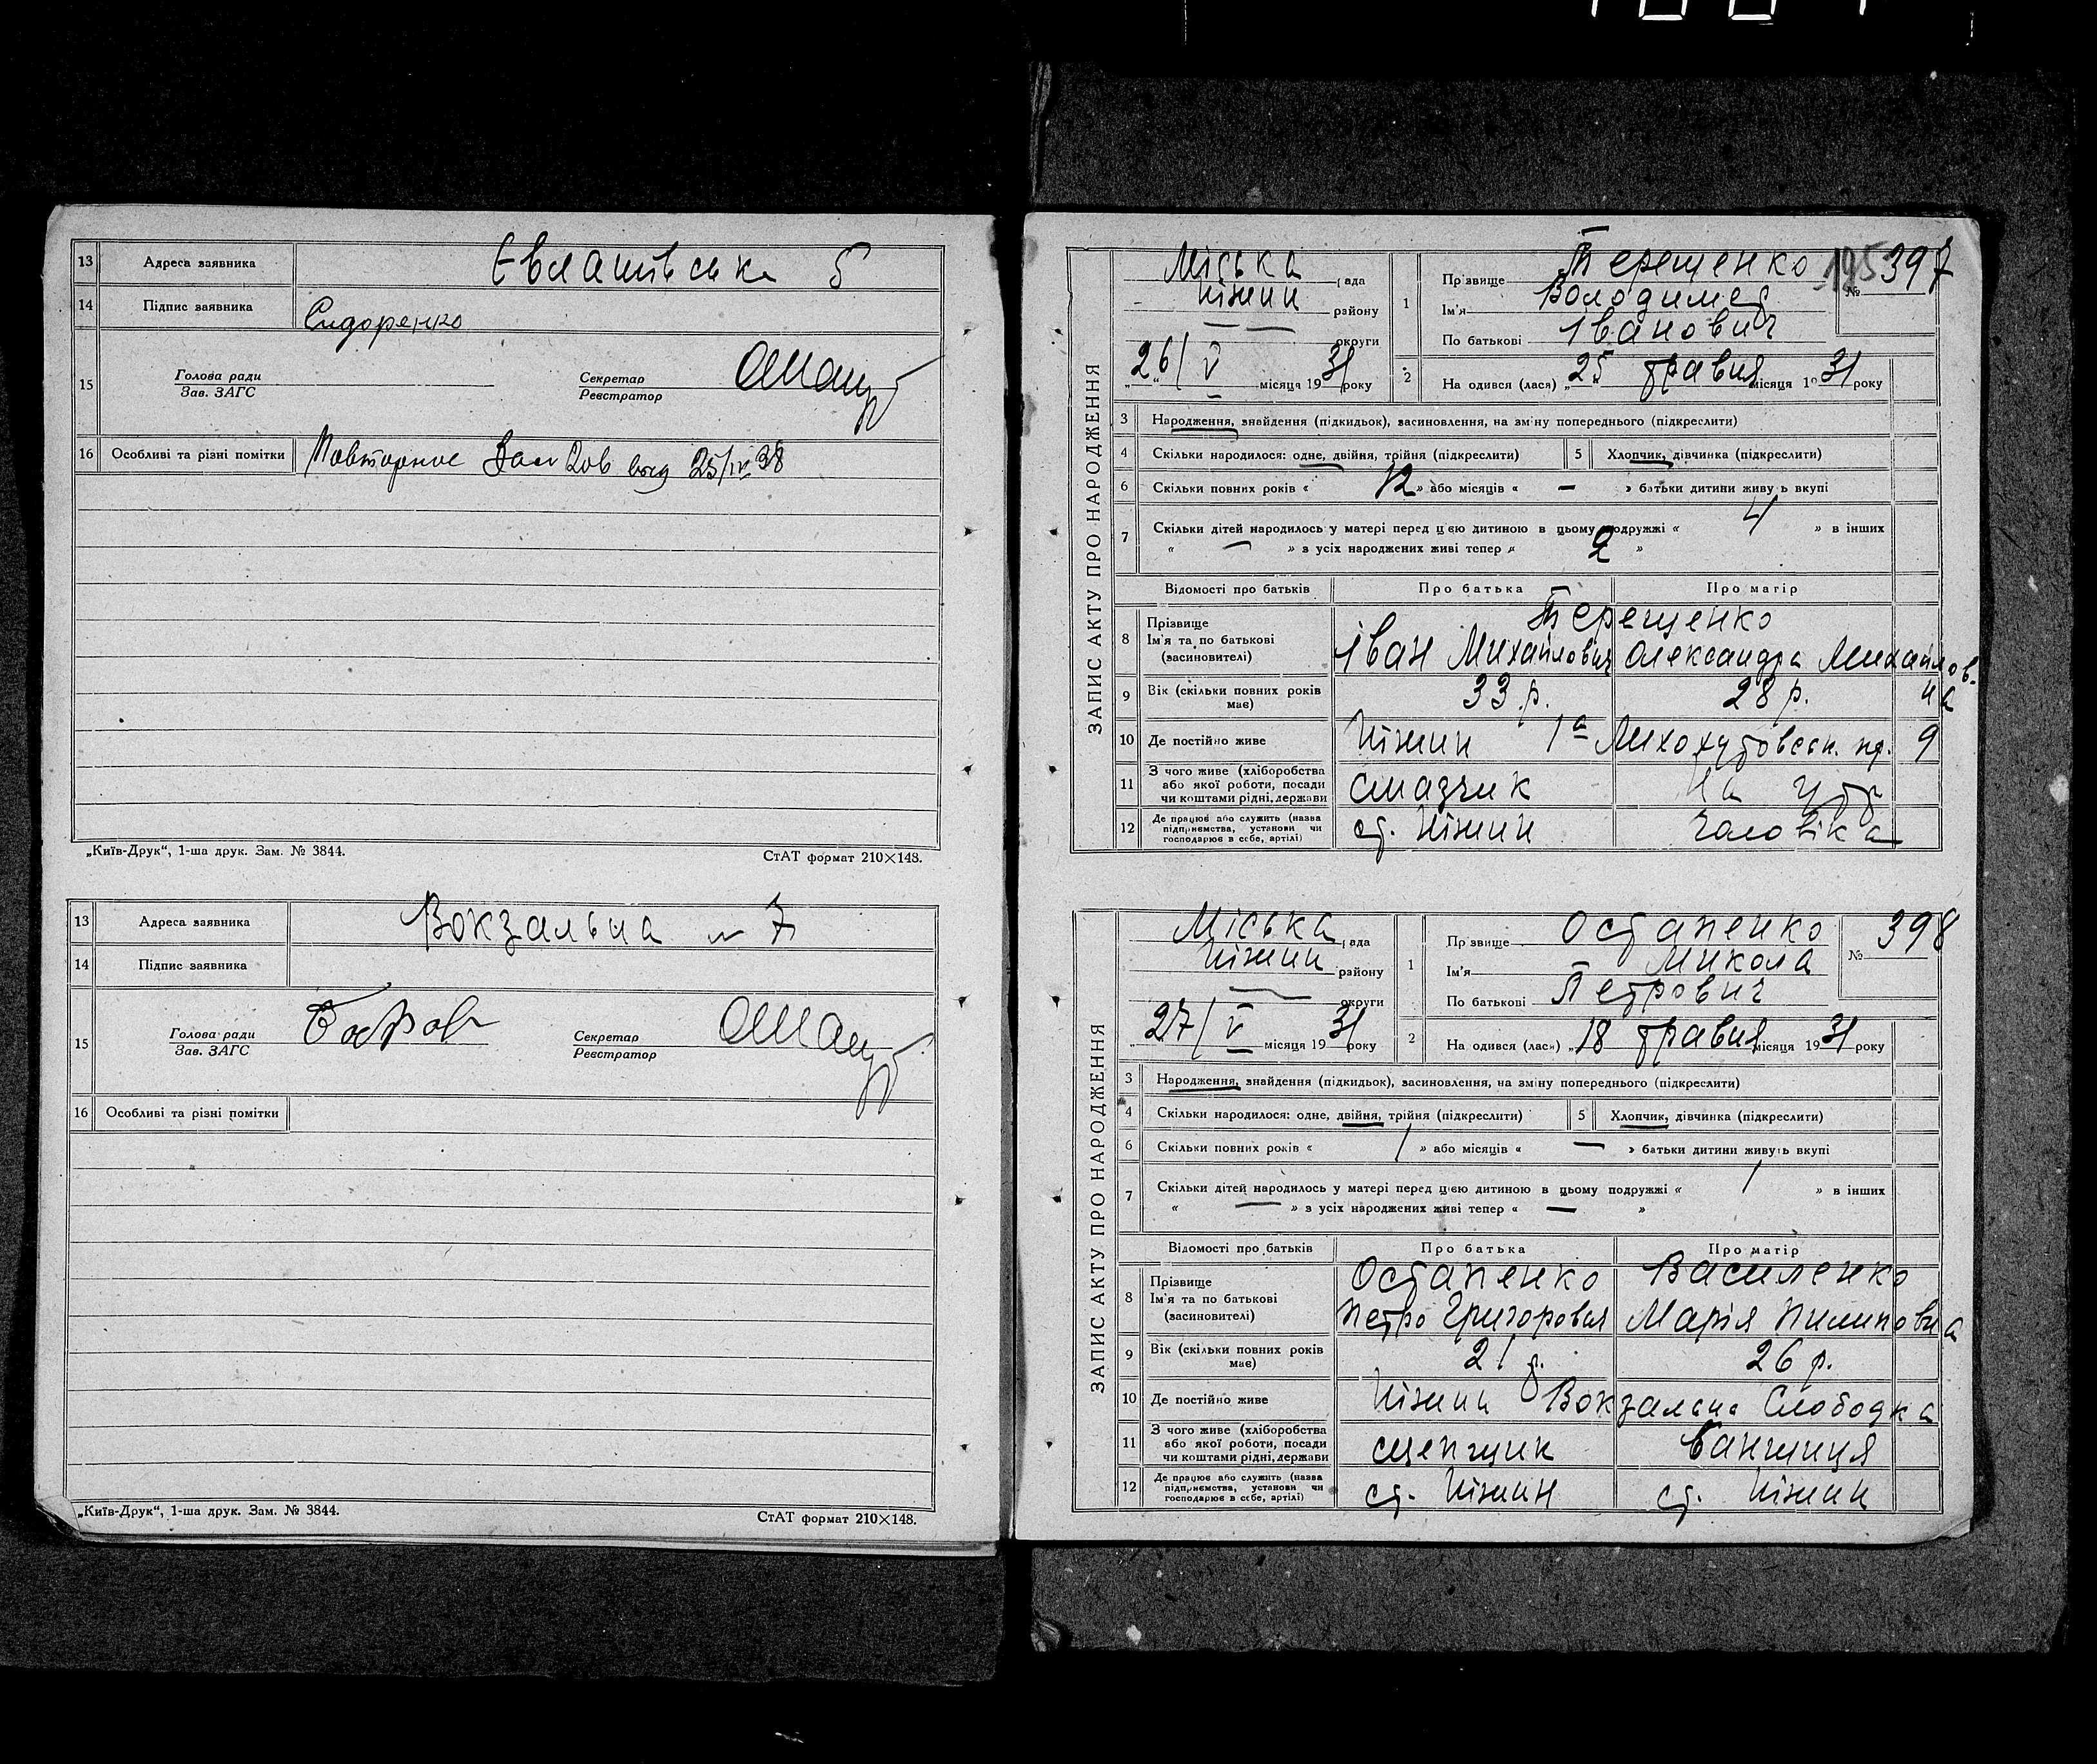 13 Адреса заявника Євлашівська 5
14 Підпис заявника Сидоренко
15 Голова ради Зав. ЗАГС Секретар Реєстратор
16 Особливі та різні помітки Повторное выд 25/IV 38
„Київ-Друк“, 1-ша друк. Зам. № 3844. СтАТ формат 210×148.
13 Адреса заявника Вокзальна № 7
14 Підпис заявника
15 Голова ради Зав. ЗАГС Секретар Реєстратор
16 Особливі та різні помітки
„Київ-Друк“, 1-ша друк. Зам. № 3844. СтАТ формат 210×148.
ЗАПИС АКТУ ПРО НАРОДЖЕННЯ
Міська рада
Ніжин району
округи
26/V місяця 1931 року
1 Прізвище Терещенко 195 № 397
Ім'я Володимер
По батькові Іванович
2 На одився (лася) „25 травня місяця 1931 року
3 Народження, знайдення (підкидьок), засиновлення, на зміну попереднього (підкреслити)
4 Скільки народилося: одне, двійня, трійня (підкреслити) 5 Хлопчик, дівчинка (підкреслити)
6 Скільки повних років « 12 » або місяців « — » батьки дитини живуть вкупі
7 Скільки дітей народилось у матері перед цією дитиною в цьому подружжі « 4 » в інших
« — » з усіх народжених живі тепер « 2 »
Відомості про батьків Про батька Про матір
8 Прізвище Ім'я та по батькові (засиновителі) Терещенко
Іван Михайлович Олександра Михайловна
9 Вік (скільки повних років має) 33 р. 28 р.
10 Де постійно живе Ніжин 1а 9
11 З чого живе (хліборобства або якої роботи, посади чи коштами рідні, держави смазчик На утр
12 Де працює або служить (назва підприємства, установи чи господарює в себе, артілі) ст. Ніжин чоловіка
ЗАПИС АКТУ ПРО НАРОДЖЕННЯ
Міська рада
Ніжин району
округи
27/V місяця 1931 року
1 Прізвище Остапенко № 398
Ім'я Микола
По батькові Петрович
2 На одився (лася) „18 травня місяця 1931 року
3 Народження, знайдення (підкидьок), засиновлення, на зміну попереднього (підкреслити)
4 Скільки народилося: одне, двійня, трійня (підкреслити) 5 Хлопчик, дівчинка (підкреслити)
6 Скільки повних років « 1 » або місяців « — » батьки дитини живуть вкупі
7 Скільки дітей народилось у матері перед цією дитиною в цьому подружжі « 1 » в інших
« — » з усіх народжених живі тепер « — »
Відомості про батьків Про батька Про матір
8 Прізвище Ім'я та по батькові (засиновителі) Остапенко Василенко
Петро Григорович Марія Пилиповна
9 Вік (скільки повних років має) 21 р. 26 р.
10 Де постійно живе Ніжин Вокзальна Слободка
11 З чого живе (хліборобства або якої роботи, посади чи коштами рідні, держави сцепщик банщиця
12 Де працює або служить (назва підприємства, установи чи господарює в себе, артілі) ст. Ніжин ст. Ніжин